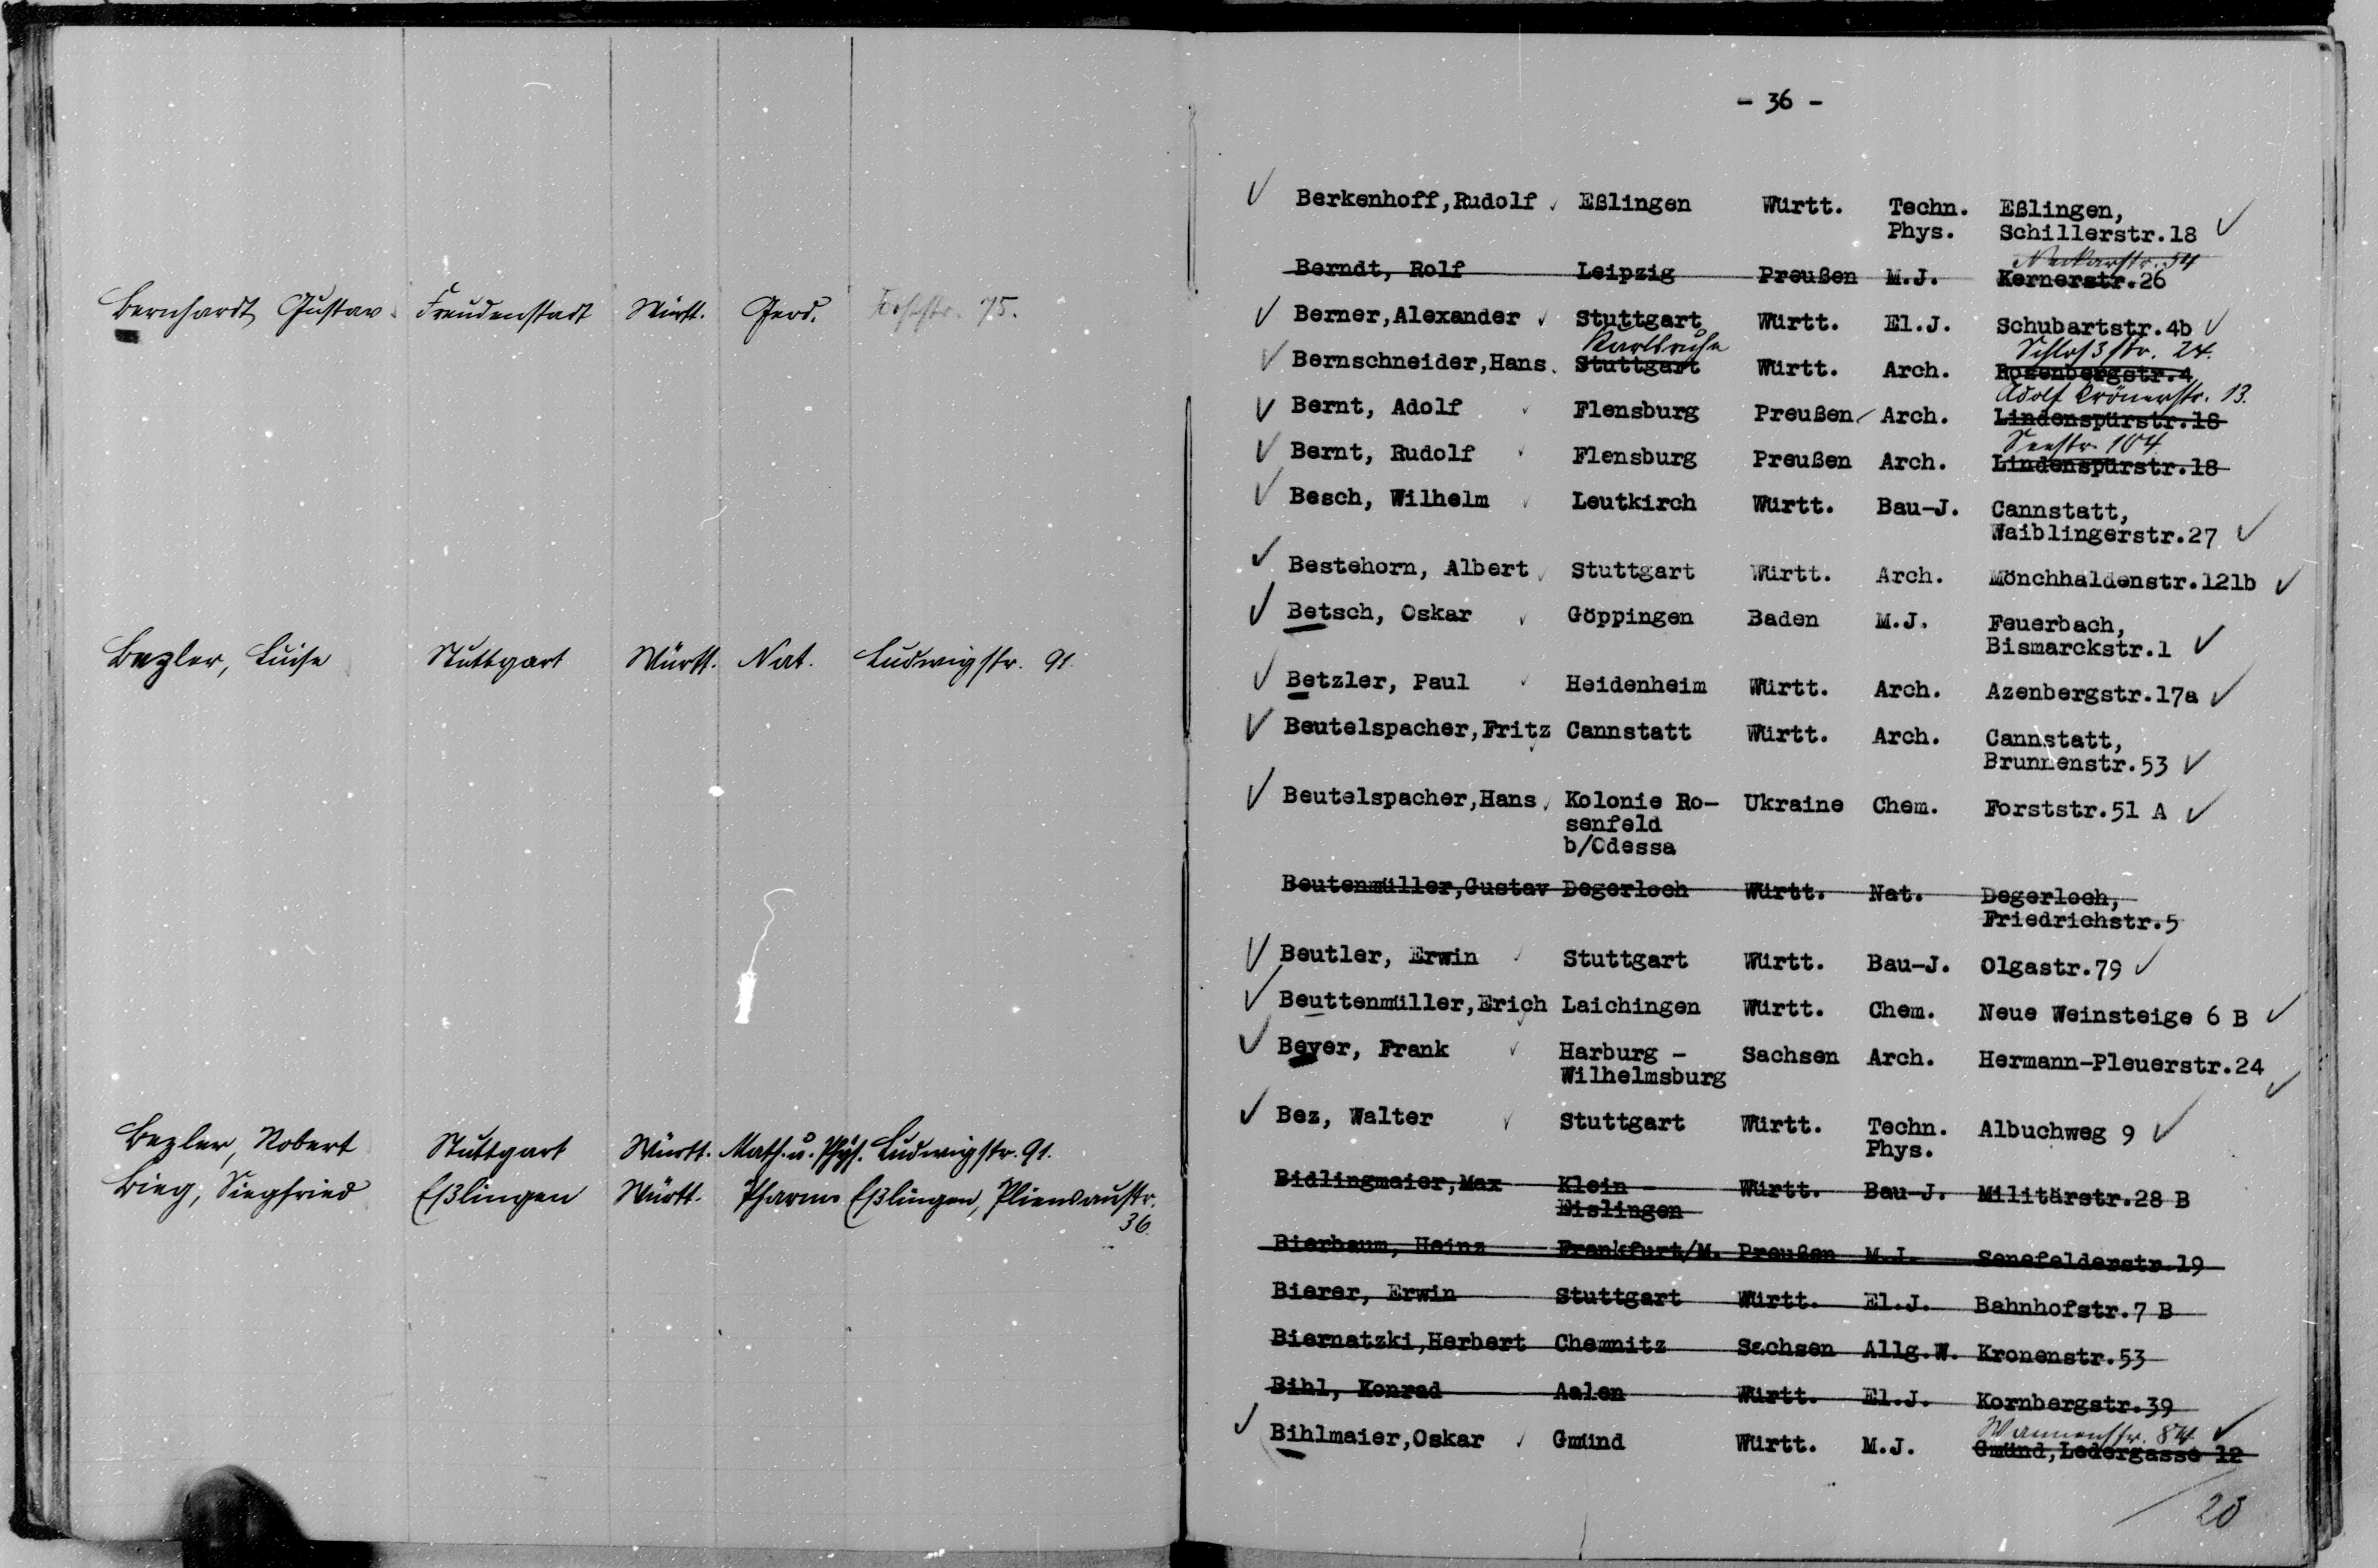 Bernhardt, Gustav Freudenstadt Württ. Geod. Forststr. 75.
Bezler, Luise Stuttgart Württ. Nat. Ludwigstr. 91.
Bezler, Robert Stuttgart Württ. Math. u. Phys. Ludwigstr. 91.
Bieg, Siegfried Eßlingen Württ. Pharm. Eßlingen, Pliensaustr.
36.
- 36 -
Berkenhoff,Rudolf Eßlingen Württ. Techn. Eßlingen,
Phys. Schillerstr.18
Neckarstr. 54
Berndt, Rolf Leipzig Preußen M.J. Kernerstr.26
Berner,Alexander Stuttgart Württ. El.J. Schubartstr.4b
Karlsruhe Schloßstr. 24.
Bernschneider,Hans Stuttgart Württ. Arch. Rosenbergstr.4
Adolf Krönerstr. 13.
Bernt, Adolf Flensburg Preußen Arch. Lindenspürstr.18
Seestr. 104
Bernt, Rudolf Flensburg Preußen Arch. Lindenspürstr.18
Besch, Wilhelm Leutkirch Württ. Bau-J. Cannstatt,
Waiblingerstr.27
Bestehorn, Albert Stuttgart Württ. Arch. Mönchhaldenstr.121b
Betsch, Oskar Göppingen Baden M.J. Feuerbach,
Bismarckstr.1
Betzler, Paul Heidenheim Württ. Arch. Azenbergstr.17a
Beutelspacher,Fritz Cannstatt Württ. Arch. Cannstatt,
Brunnenstr.53
Beutelspacher,Hans Kolonie Ro- Ukraine Chem. Forststr.51 A
senfeld
b/Odessa
Beutenmüller,Gustav Degerloch Württ. Nat. Degerloch,
Friedrichstr.5
Beutler, Erwin Stuttgart Württ. Bau-J. Olgastr.79
Beuttenmüller,Erich Laichingen Württ. Chem. Neue Weinsteige 6 B
Beyer, Frank Harburg - Sachsen Arch. Hermann-Pleuerstr.24
Wilhelmsburg
Bez, Walter Stuttgart Württ. Techn. Albuchweg 9
Phys.
Bidlingmaier,Max Klein - Württ. Bau-J. Militärstr.28 B
Eislingen
Bierbaum, Heinz Frankfurt/M. Preußen M.J. Senefelderstr.19
Bierer, Erwin Stuttgart Württ. El.J. Bahnhofstr.7 B
Biernatzki,Herbert Chemnitz Sachsen Allg.W. Kronenstr.53
Bihl, Konrad Aalen Württ. El.J. Kornbergstr.39
Wannenstr. 84
Bihlmaier,Oskar Gmünd Württ. M.J. Gmünd,Ledergasse 12
20